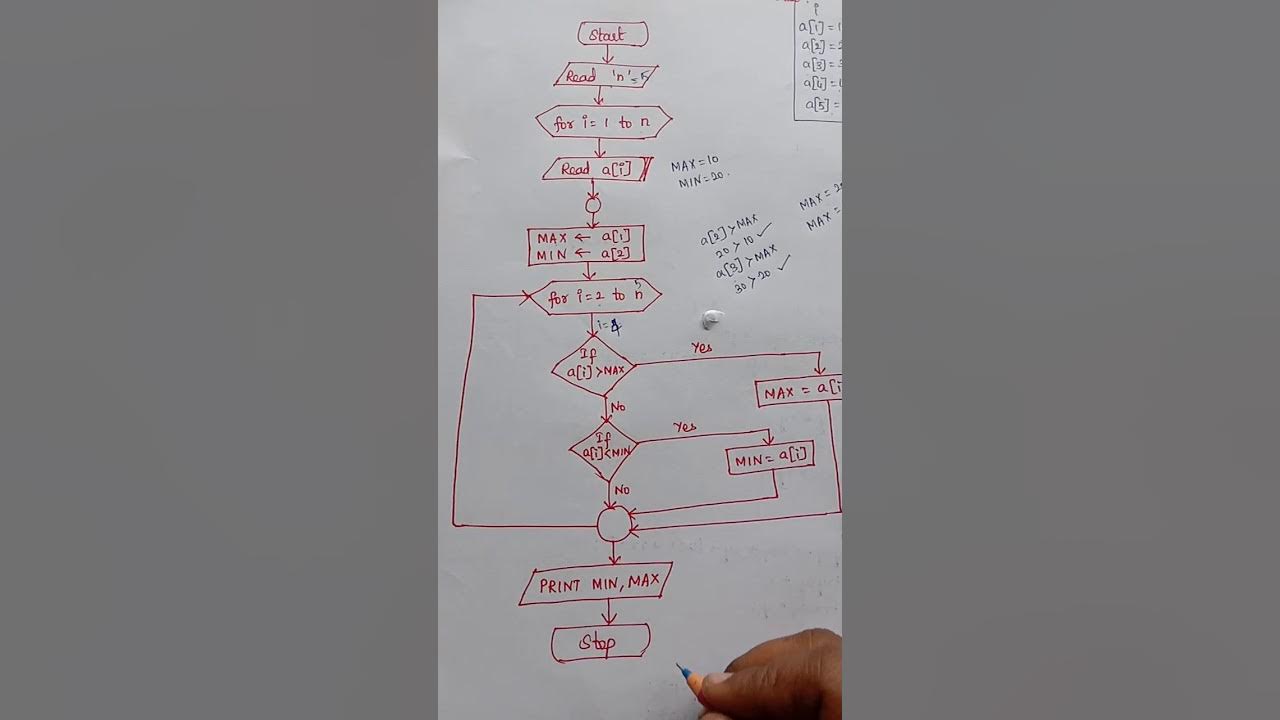 Start
Read 'n'=5
for i=1 to n
Read a[i]
MAX ← a[1]
MIN ← a[2]
5
for i=2 to n
i=4
If
a[i]>MAX
Yes
MAX = a[i
No
If
a[i]<MIN
Yes
MIN= a[i]
No
PRINT MIN, MAX
Stop
MAX=10
MIN=20.
a[2]>MAX
20>10 ✓
a[3]>MAX
30>20 ✓
MAX = 20
MAX =
i
a[1] = 1
a[2] = 2
a[3] = 3
a[4] =
a[5] =